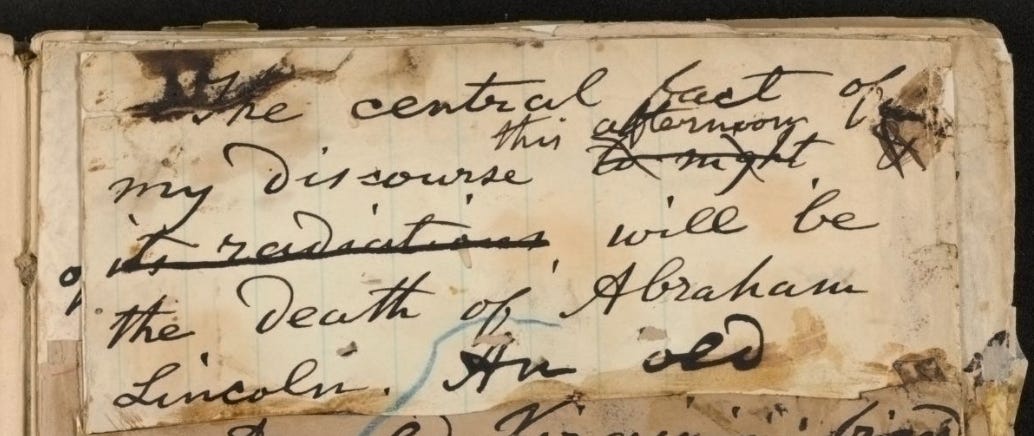 The central fact of
this afternoon
my discourse to night &
its radiations will be
the death of Abraham
Lincoln. An old